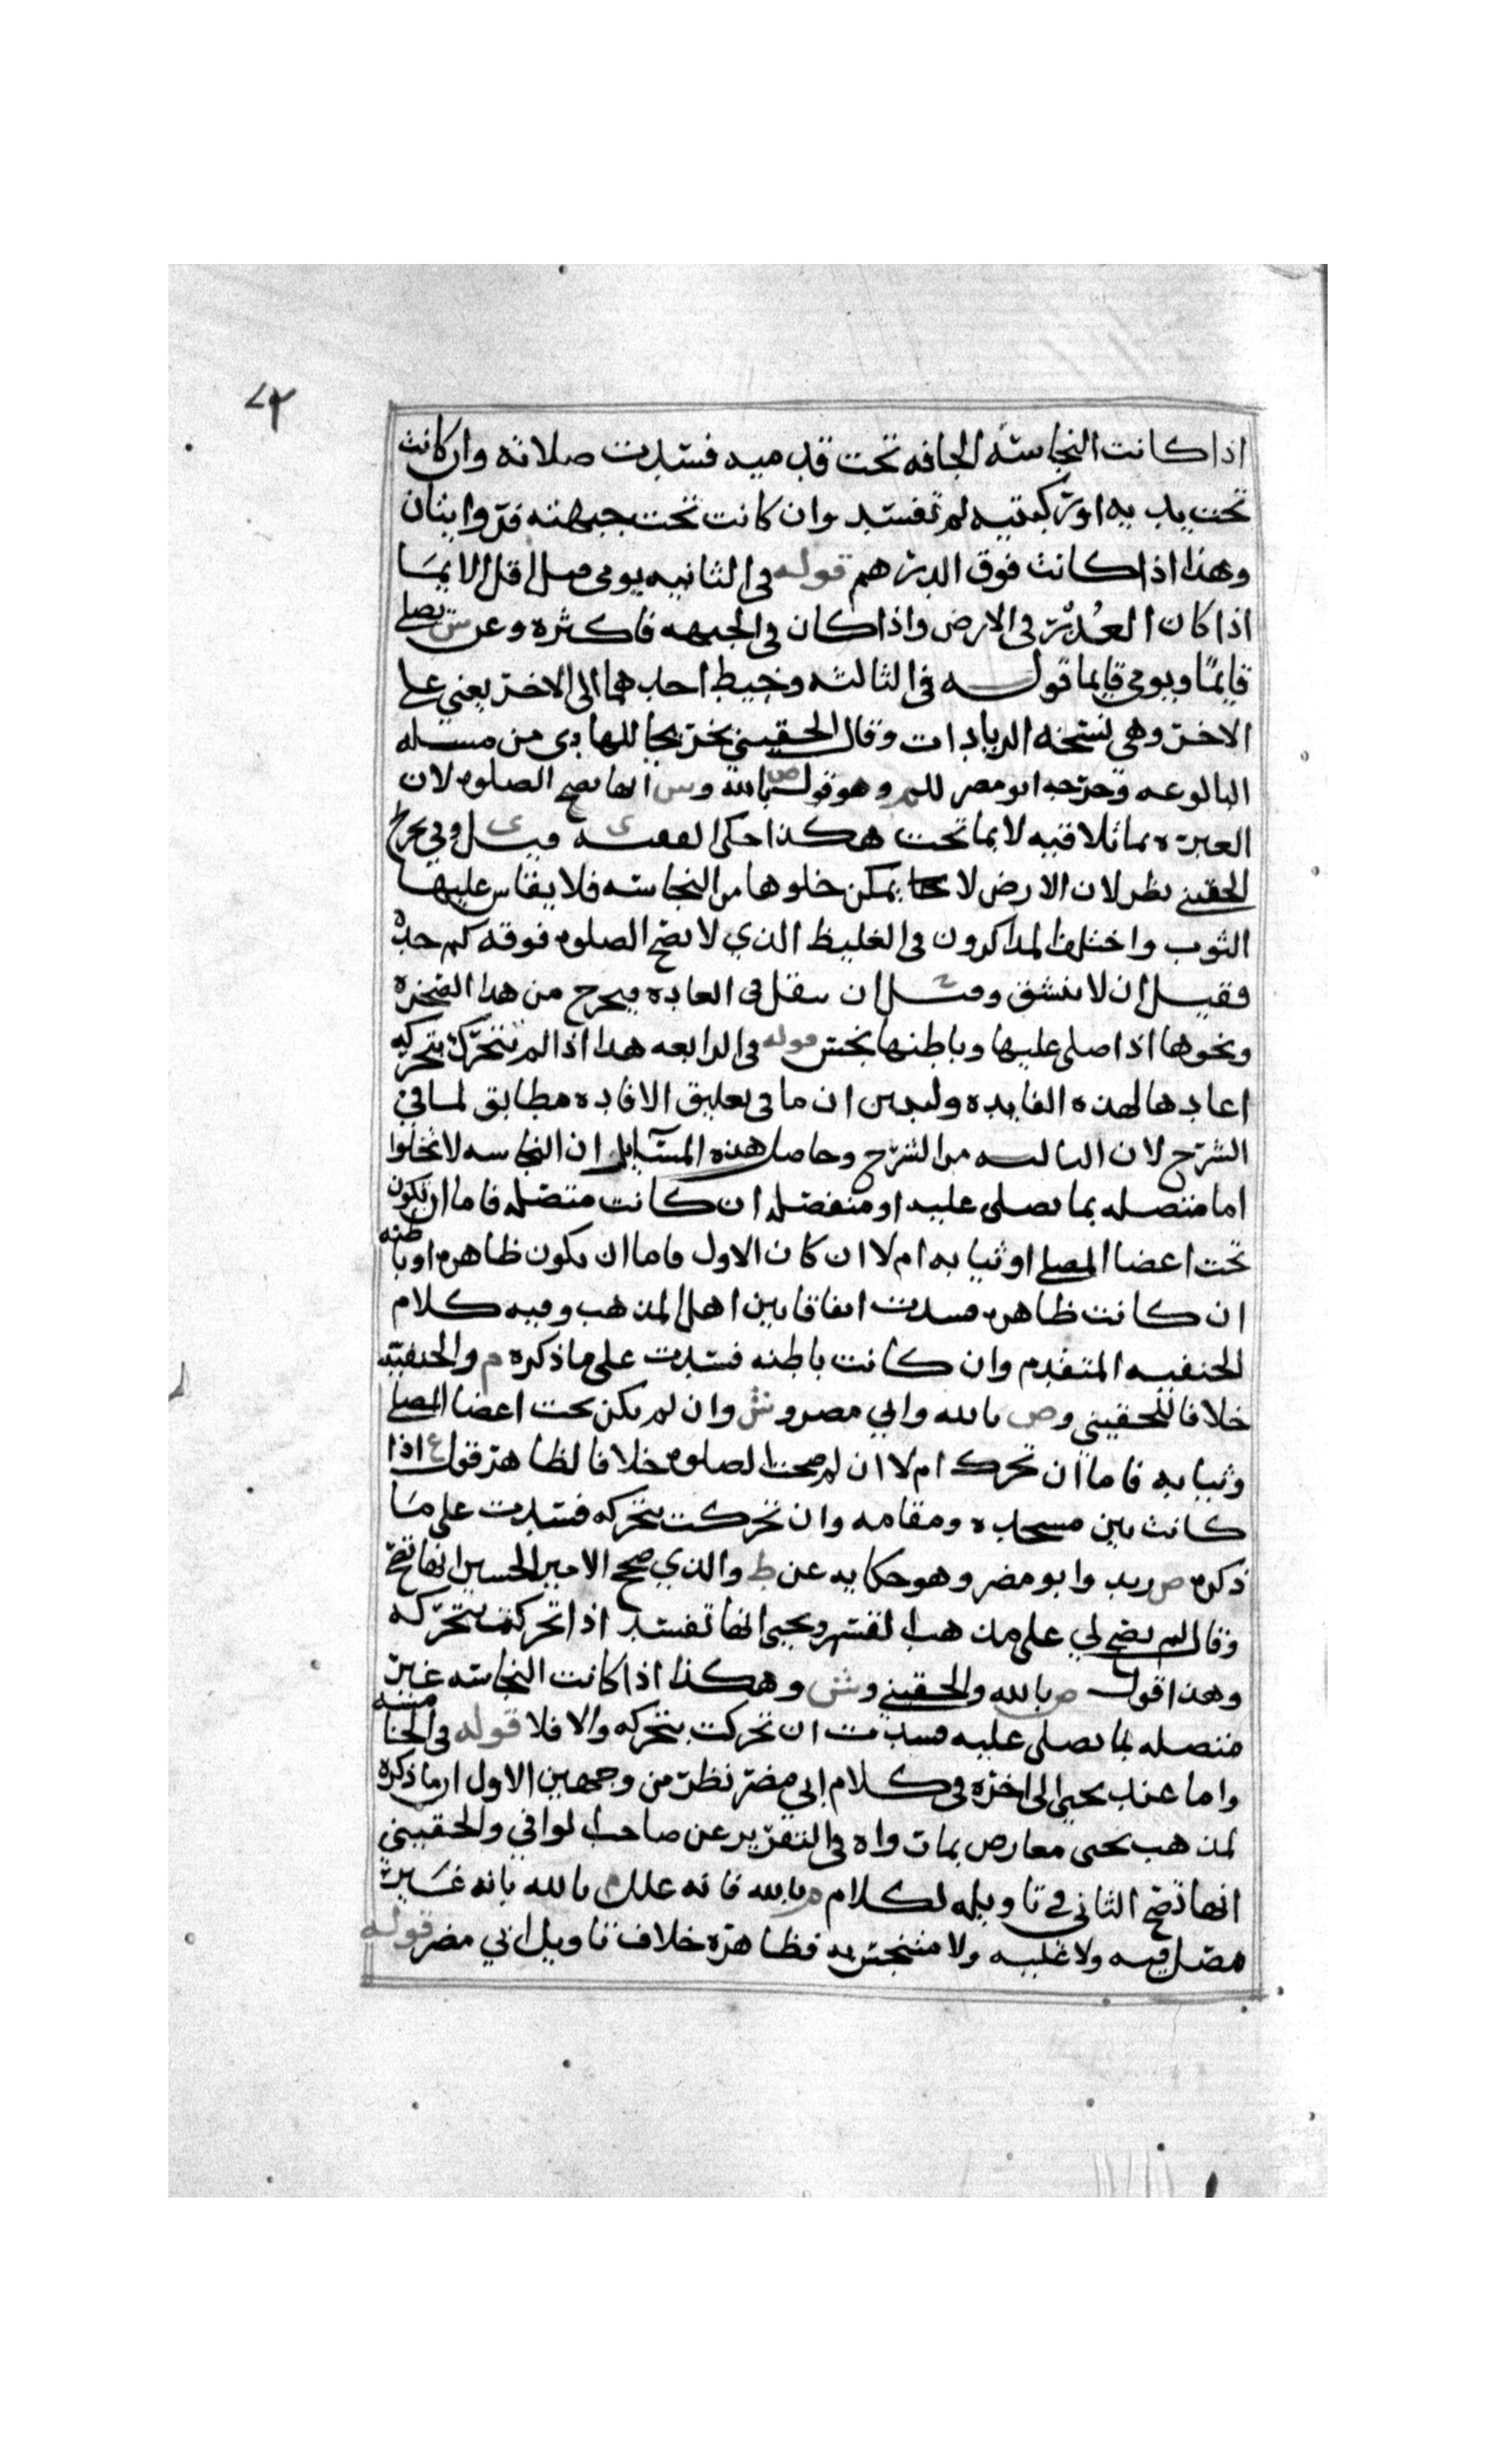 ٧٣
اذا كانت النجاسه الجافه تحت قدميه فسدت صلاته وان كانت
تحت يديه او ركبتيه لم تفسد وان كانت تحت جبهته فروايتان
وهذا اذا كانت فوق الدرهم قوله فى الثانيه يومى مثل اقل الايما
اذا كان العذر فى الارض واذا كان فى الجبهه فاكثره وعن ش يصلى
قايمًا ويومى قايما قوله فى الثالثه وخيط احدهما الى الاخر يعني على
الاخر وهى نسخه الزيادات وقال الحقيني تخريجا للهادى من مسله
البالوعه وخرجه ابو مضر للم وهو قول ص بالله وش انها تصح الصلوه لان
العبره بما تلاقيه لا بما تحت هكذا حكى الفقيه ى قيل ى وفي تخريج
الحقيني نظر لان الارض لا يمكن خلوها من النجاسه فلا يقاس عليها
الثوب واختلف المذاكرون فى الغليظ الذي لا تصح الصلوه فوقه كم حده
فقيل ان لا ينشق وقيل ان يثقل فى العاده فيخرج من هذا الصخره
ونحوها اذا صلى عليها وباطنها نجس قوله فى الرابعه هذا اذا لم تتحرك بتحركه
اعادها لهذه الفايده وليبين ان ما فى تعليق الافاده مطابق لما في
الشرح لان الثالثه من الشرح وحاصل هذه المسايل ان النجاسه لا تخلوا
اما متصله بما يصلى عليه او منفصله ان كانت متصله فاما ان تكون
تحت اعضا المصلى او ثيابه ام لا ان كان الاول فاما ان يكون ظاهره او باطنه
ان كانت ظاهره فسدت اتفاقا بين اهل المذهب وفيه كلام
الحنفيه المتقدم وان كانت باطنه فسدت على ما ذكره م والحنفيه
خلافا للحقيني وص بالله وابي مضر وش وان لم يكن تحت اعضا المصلى
وثيابه فاما ان تحرك ام لا ان لم صحت الصلوه خلافا لظاهر قول ع اذا
كانت بين مسجده ومقامه وان تحركت بتحركه فسدت على ما
ذكره ص زيد وابو مضر وهو حكايه عن ط والذي صحح الامير الحسين انها تصح
وقال لم يصح لي على مذهب القسم ويحيى انها تفسد اذا تحركت بتحركه
وهذا قول ص بالله والحقيني وش وهكذا اذا كانت النجاسه غير
متصله بما يصلى عليه فسدت ان تحركت بتحركه والا فلا قوله فى الخامسه
واما عند يحيى الى اخره فى كلام ابي مضر نظر من وجهين الاول ان ما ذكره
لمذهب يحيى معارض بما رواه فى التقرير عن صاحب الوافي والحقيني
انها تصح الثاني في تاويله لكلام ص بالله فانه علل م بالله بانه غير
مصل فيه ولا عليه ولا متنجس به فظاهره خلاف تاويل ابي مضر قوله